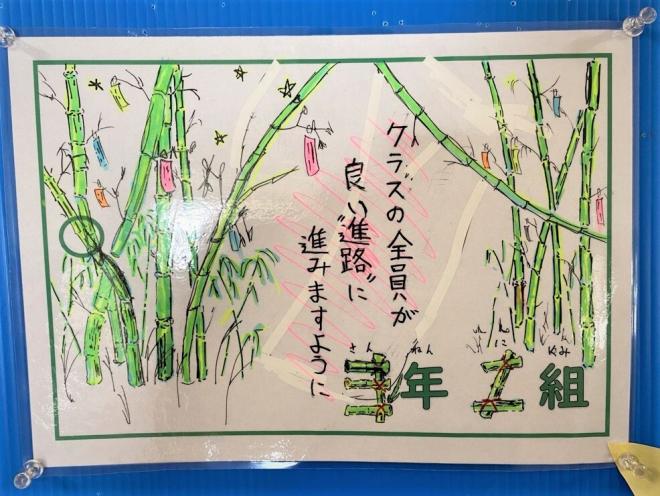 クラスの全員が
良い〝進路〟に
進みますように
さん ねん に くみ
三年 2組